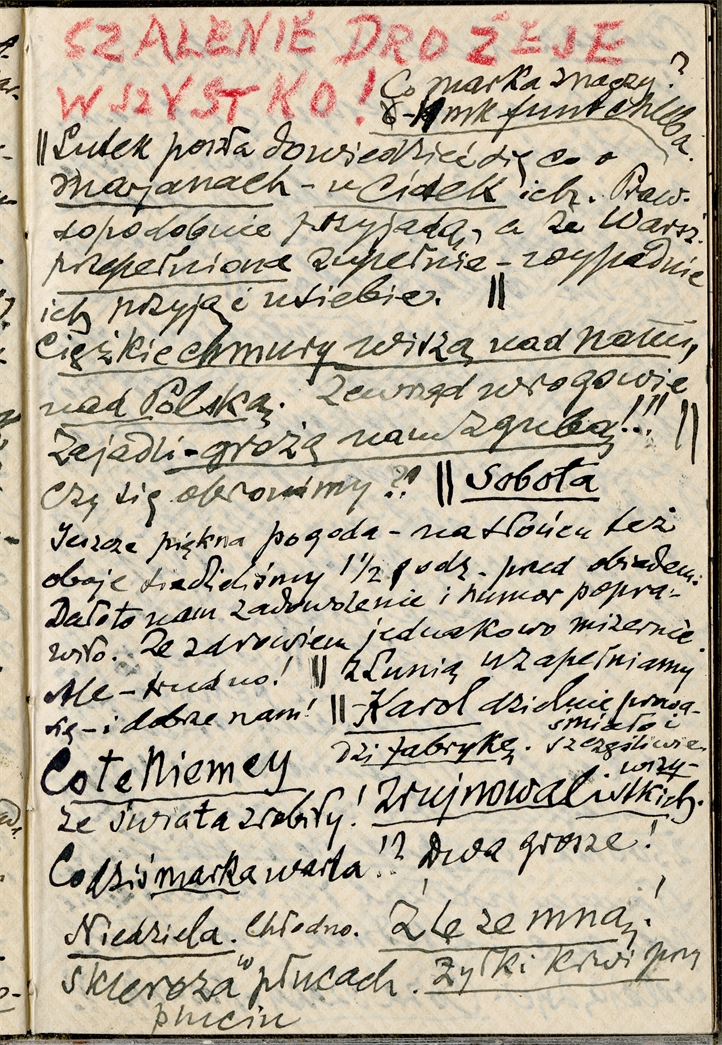 SZALENIE DROŻEJE
WSZYSTKO! Co marka znaczy?
mrk funt chleba.
|| Lutek poszła dowiedzieć się co o
Marjanach - w Cidek ich. Praw-
dopodobnie przyjadą, a że Warsz.
przepełniona zupełnie - wypadnie
ich przyjąć u siebie. ||
Ciężkie chmury wiszą nad nami,
nad Polską. Zewsząd wrogowie
zajadli - grożą nam zgubą!!! ||
Czy się obronimy?! || Sobota
Jeszcze piękna pogoda - na słońcu też
oboje siedzieliśmy 1 1/2 godz. przed obiadem.
Dało to nam zadowolenie i humor popra-
wiło. Ze zdrowiem jednakowo mizernie.
Ale - trudno! || Z Lunią uzupełniamy
się - i dobrze nam! || Karol dzielnie prowa-
dzi fabrykę. śmiało i szczęśliwie
Co te Niemcy
ze świata zrobiły! Zrujnowali wszy-
stkich.
Co dziś marka warta!? Dwa grosze!
Niedziela. Chłodno. Źle ze mną!
Skleroza w płucach. Żyłki krwi przy
pluciu